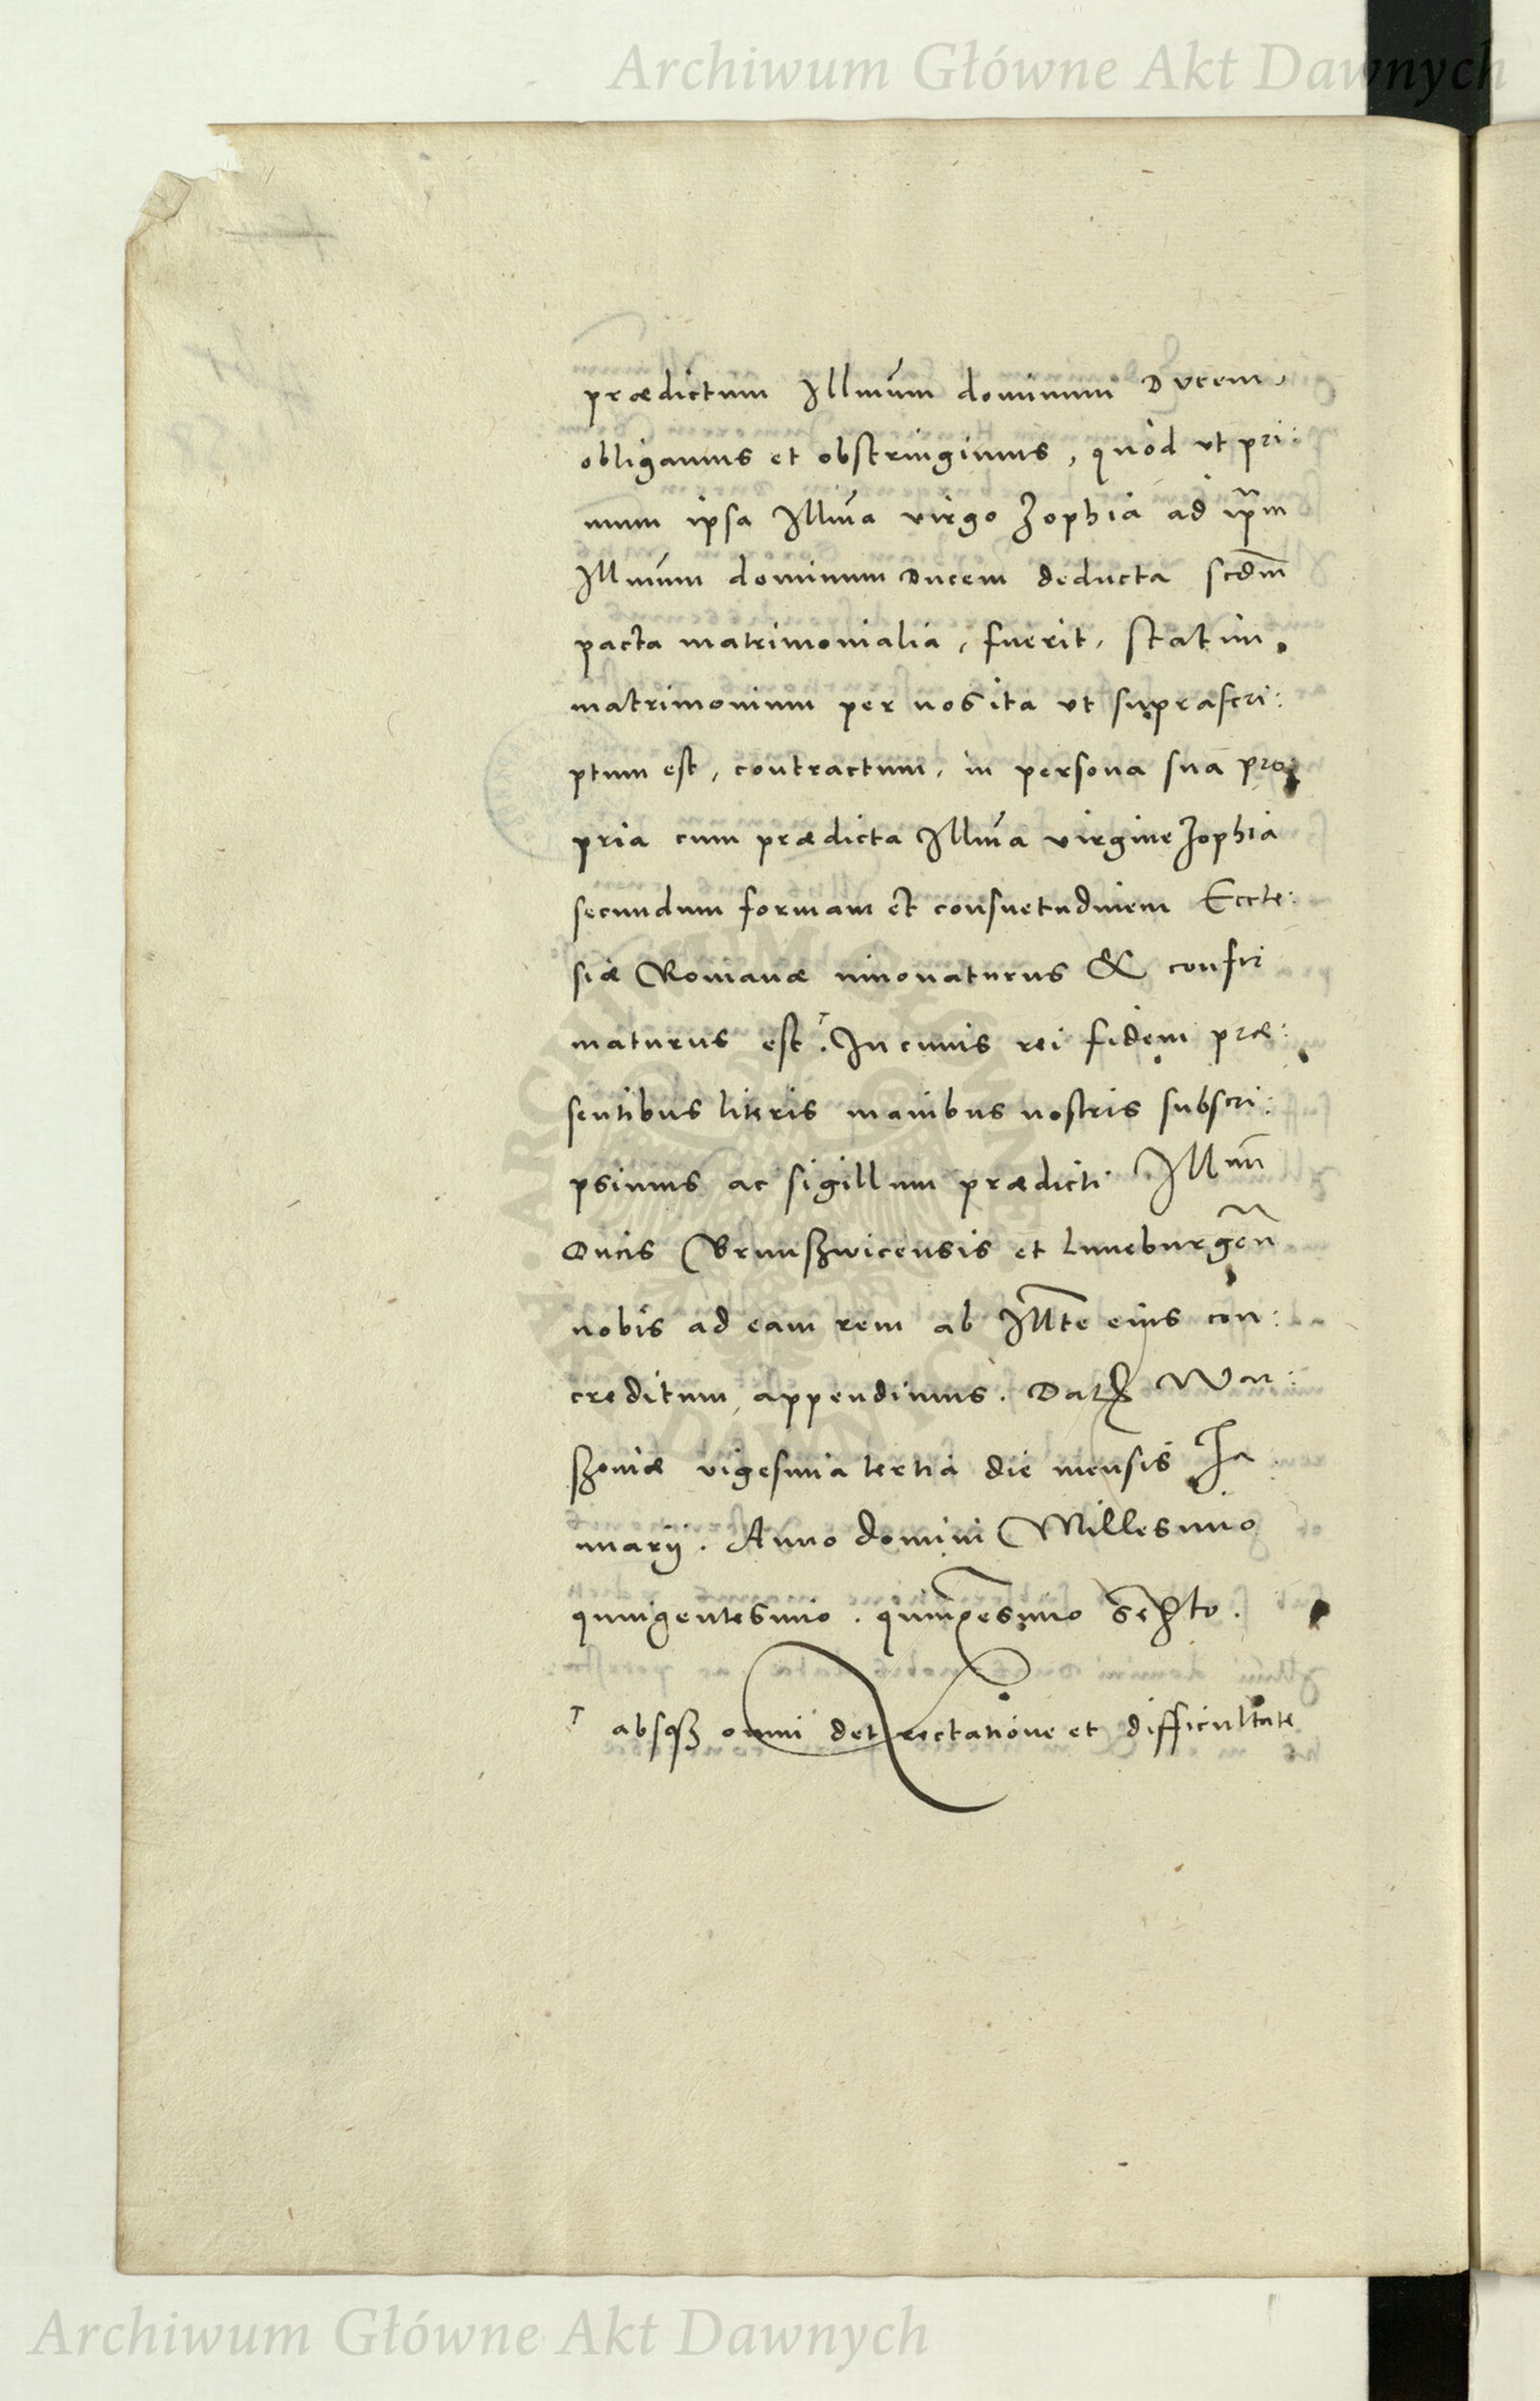 Archiwum Główne Akt Dawnych
prædictum Illmum dominum Ducem,
obligamus et obstringimus, quòd ut pri:
mum ipsa Illma virgo Zophia ad ipm
Illmum dominum Ducem deducta scdm
pacta matrimonialia, fuerit, statim,
matrimonium per nos ita ut suprascri:
ptum est, contractum, in persona sua pro:
pria cum prædicta Illma virgine Zophia
secundum formam et consuetudinem Eccle:
siæ Romanæ innovaturus & confir
maturus est. ⸆ In cuius rei fidem præ:
sentibus literis manibus nostris subscri:
psimus ac sigillum prædicti Illmi
Ducis Brunszwicensis et Luneburgen
nobis ad eam rem ab Illte eius con:
creditum, appendimus. Dat Var:
szoviæ vigesima tertia die mensis Ja
nuarij. Anno domini Millesimo
quingentesimo. quinqesimo sexto.
⸆ absqz omni detrectatione et difficultate
ARCHIWUM GŁÓWNE AKT DAWNYCH
Archiwum Główne Akt Dawnych